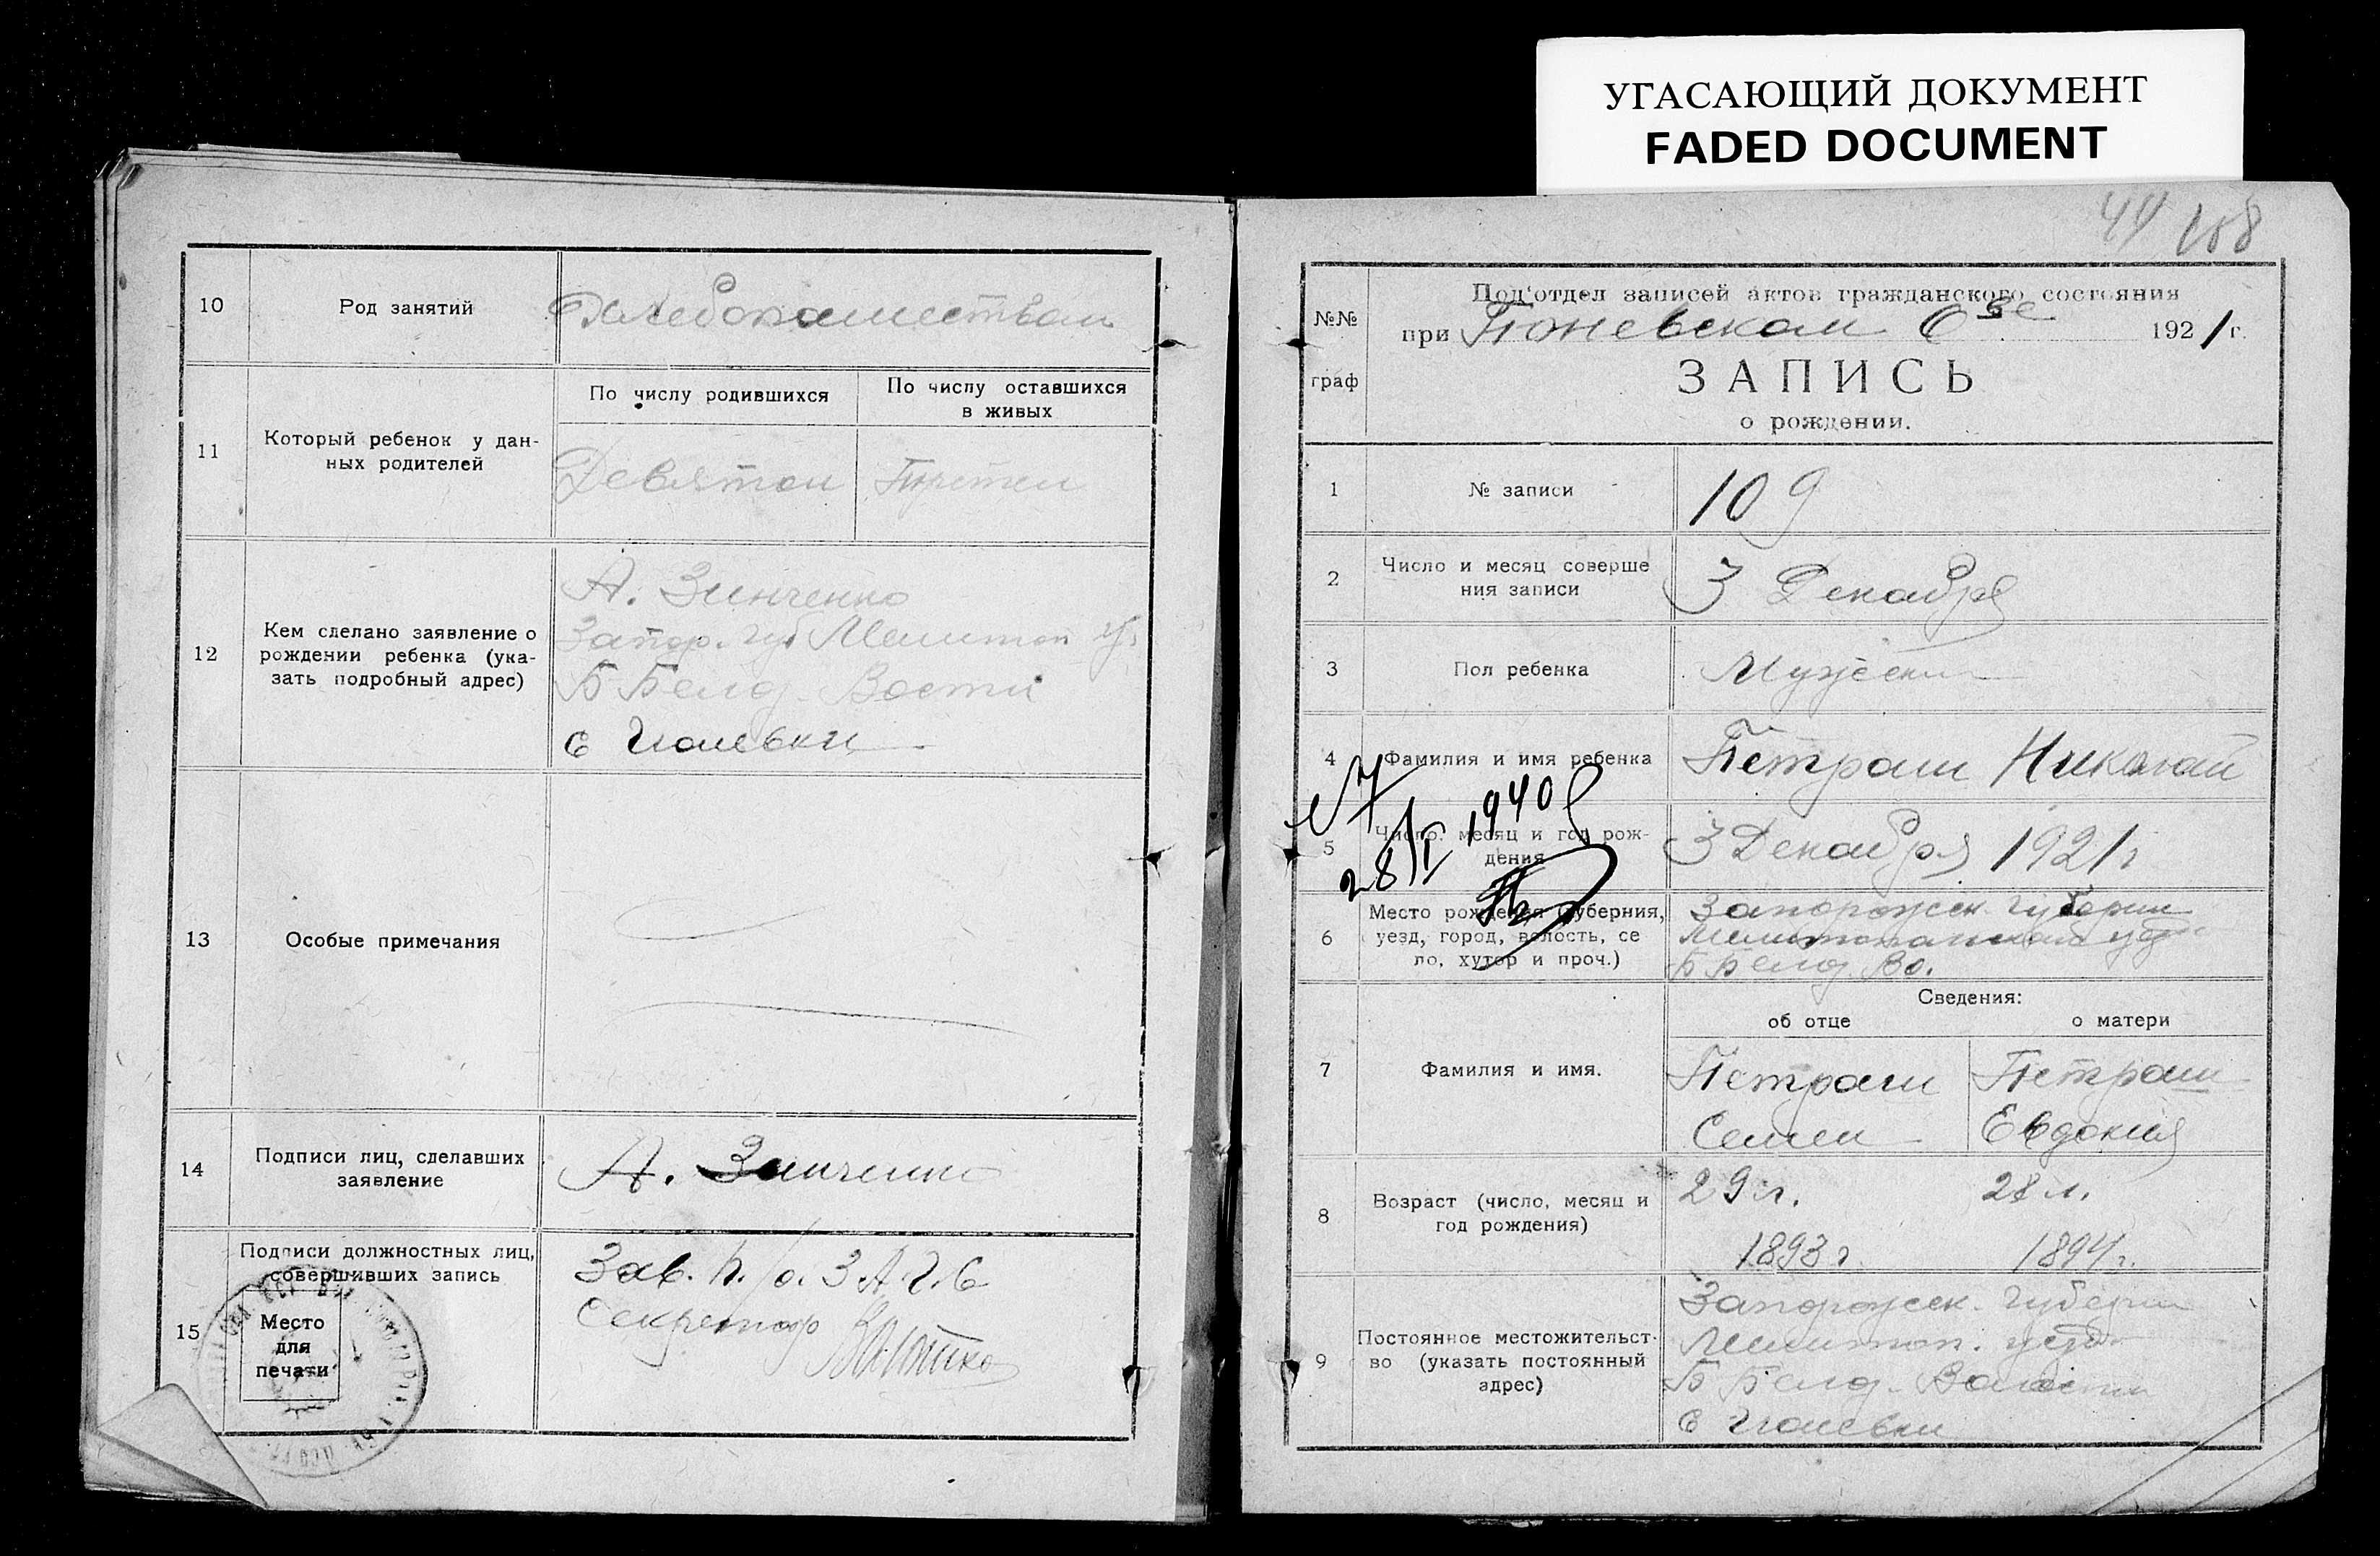 УГАСАЮЩИЙ ДОКУМЕНТ
FADED DOCUMENT
10
Род занятий
11
Который ребенок у дан-
ных родителей
По числу родившихся
По числу оставшихся
в живых
Девятой
12
Кем сделано заявление о
рождении ребенка (ука-
зать подробный адрес)
А. Зинченко
Запор. губ Мелитоп у.
Б Белоз. Вости
с
13
Особые примечания
14
Подписи лиц, сделавших
заявление
А. Зинченко
15
Подписи должностных лиц,
совершивших запись
Место
для
печати
Зав. п./о. З А Г. С
Секретар
44 158
№№
граф
Под'отдел записей актов гражданского состояния
при 1921 г.
ЗАПИСЬ
о рождении.
1
№ записи
109
2
Число и месяц соверше
ния записи
3 Декабря
3
Пол ребенка
Мужески
4
Фамилия и имя ребенка
Петраш Николай
5
Число, месяц и год рож-
дения
3 Декабря 1921 г
28/I 1940
6
Место рождения (губерния,
уезд, город, волость, се
ло, хутор и проч.)
Запорожск. губерни
Б Белоз. Во.
Сведения:
об отце
о матери
7
Фамилия и имя.
Петраш
Семен
Петраш
Евдокия
8
Возраст (число, месяц и
год рождения)
29 л.
1893 г
28 л.
1894 г.
9
Постоянное местожительст-
во (указать постоянный
адрес)
Запорожск. губерни
Мелитоп. уезд
Б Белоз. Волости
с